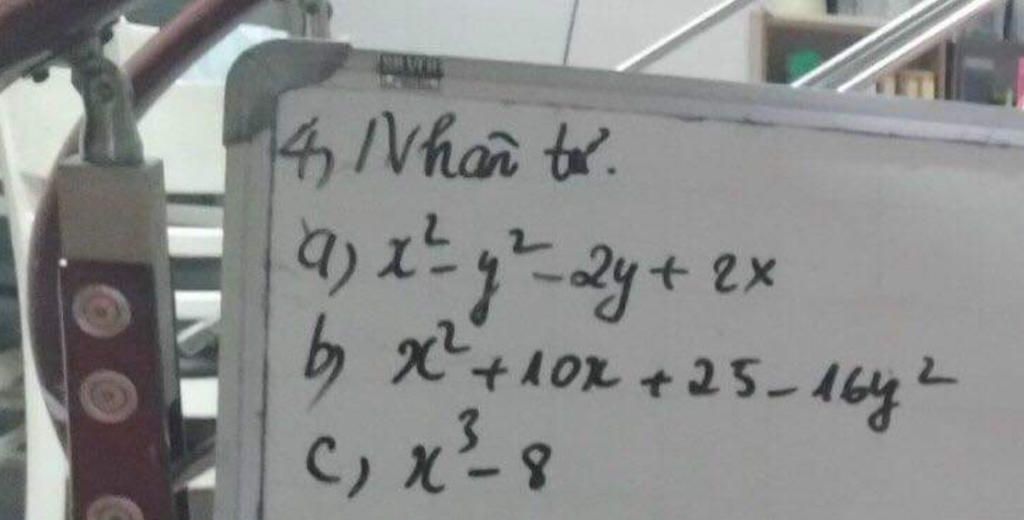 4, Nhân tử.
a) x² - y² - 2y + 2x
b) x² + 10x + 25 - 16y²
c, x³ - 8